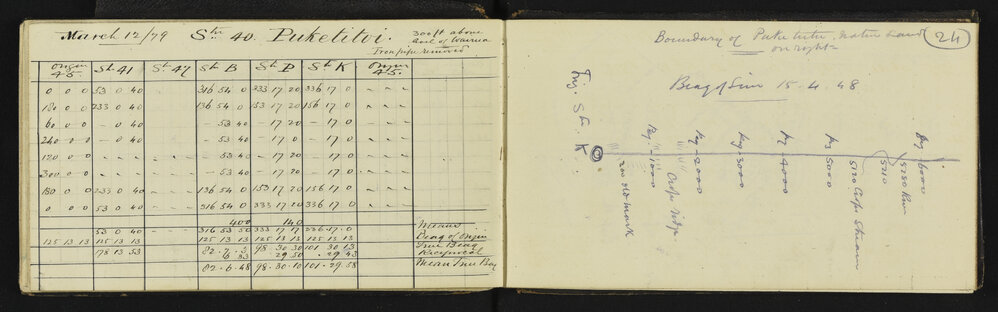 March 12/79 Stn 40. Puketitoi. 300 ft above
level of Wairoa
Iron pipe removed
Origin 45. St 41 St. 47 St. B St. P St. K Origin 45.
0 0 0 53 0 40 316 54 0 333 17 20 336 17 0
180 0 0 233 0 40 136 54 0 153 17 20 156 17 0
60 0 0 - 0 40 - 53 40 - 17 20 - 17 0
240 0 0 - 0 40 - 53 40 - 17 0 - 17 0
120 0 0 - 53 40 - 17 20 - 17 0
300 0 0 - 53 40 - 17 20 - 17 0
180 0 0 233 0 40 136 54 0 153 17 20 156 17 0
0 0 0 53 0 40 316 54 0 333 17 20 336 17 0
400 140
53 0 40 316 53 50 333 17 17 336 17 0 Means
125 13 13 125 13 13 125 13 13 125 13 13 125 13 13 Beng of Origin
178 13 53 82 7 3 98 30 30 101 30 13 True Beng
6 33 29 50 29 43 Reciprocal
82 6 48 98 30 10 101 29 58 Mean True Beg
24
Boundary of Puketitoi native Land
on right
Beng of Line 15.4.48
Trig. Stn. K
200 old mark
Peg 1000
Peg 2000
Peg 3000
Peg 4000
Peg 5000
5120 Edge Stream
5210
Peg 6000